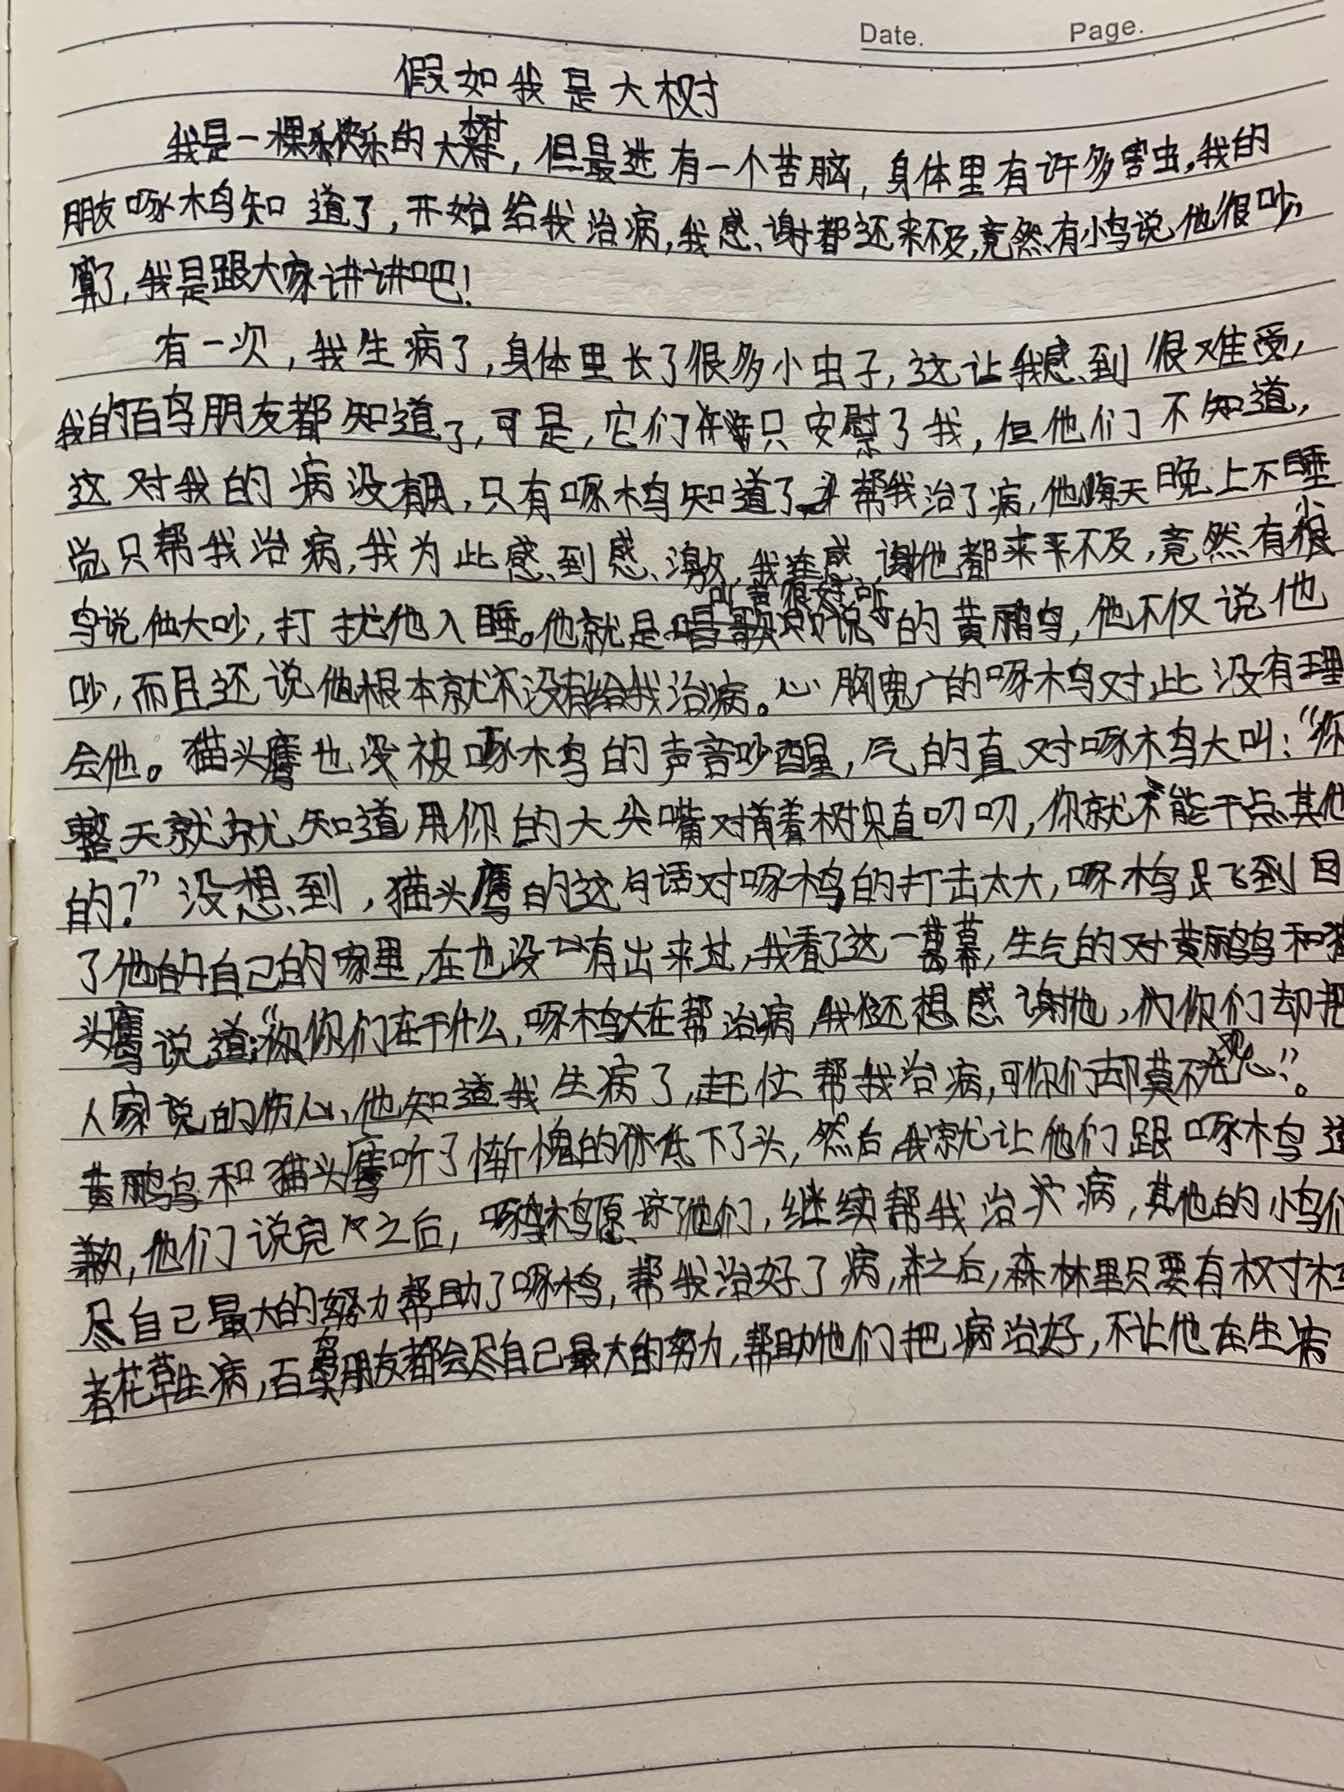 Date. Page.
假如我是大树
我是一棵快乐的大树，但最近有一个苦脑，身体里有许多害虫。我的
朋友啄木鸟知道了，开始给我治病，我感谢都还来不及，竟然有小鸟说他很吵，
算了，我是跟大家讲讲吧！
有一次，我生病了，身体里长了很多小虫子，这让我感到很难受，
我的百鸟朋友都知道了，可是，它们只安慰了我，但他们不知道，
这对我的病没有用，只有啄木鸟知道了，帮我治了病，他每天晚上不睡
觉只帮我治病，我为此感到感激，我连感谢他都来不及，竟然有小
鸟说他大吵，打扰他入睡。他就是叫声很好听的黄鹂鸟，他不仅说他
吵，而且还说他根本就没有给我治病。心胸宽广的啄木鸟对此没有理
会他。猫头鹰也没被啄木鸟的声音吵醒，气的直对啄木鸟大叫：“你
整天就知道用你的大尖嘴对着树叨叨，你就不能干点其他
的？”没想到，猫头鹰的这句话对啄木鸟的打击太大，啄木鸟飞到
了他自己的家里，在也没有出来过，我看了这一幕，生气的对黄鹂鸟和猫
头鹰说道：“你们在干什么，啄木鸟在帮治病，我还想感谢他，你们却把
人家说的伤心，他知道我生病了，赶忙帮我治病，可你们却莫不关心！”。
黄鹂鸟和猫头鹰听了惭愧的低下了头，然后我就让他们跟啄木鸟道
歉，他们说完之后，啄木鸟愿谅了他们，继续帮我治病，其他的小鸟们
尽自己最大的努力帮助了啄木鸟，帮我治好了病，之后，森林里只要有树木
者花草生病，百鸟朋友都会尽自己最大的努力，帮助他们把病治好，不让他在生病